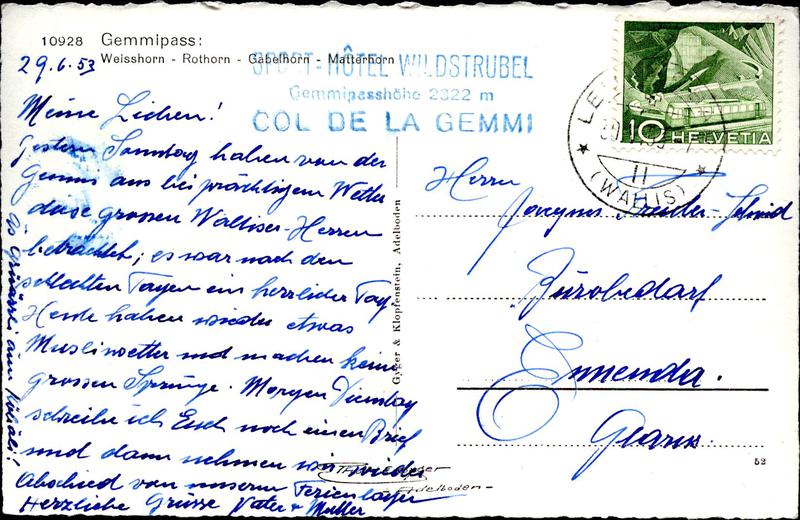 10928 Gemmipass:
Weisshorn - Rothorn - Gabelhorn - Matterhorn
29.6.53
SPORT-HÔTEL WILDSTRUBEL
Gemmipasshöhe 2322 m
COL DE LA GEMMI
Meine Lieben!
Gestern Sonntag haben von der
Gemmi aus bei prächtigem Wetter
diese grossen Walliser-Herren
betrachtet; es war nach den
schlechten Tagen ein herrlicher Tag
Heute haben wieder etwas
wetter und machen keine
grossen Sprünge. Morgen Dienstag
schreibe ich Euch noch einen Brief
und dann nehmen wir wieder
Abschied von unserm Ferienlager
Herzliche Grüsse Vater + Mutter
am
Gyger & Klopfenstein, Adelboden
10 HELVETIA
LE
II
(WALLIS)
Herrn
-Schmid
Bürobedarf
Ennenda.
Glarus.
52
Adelboden